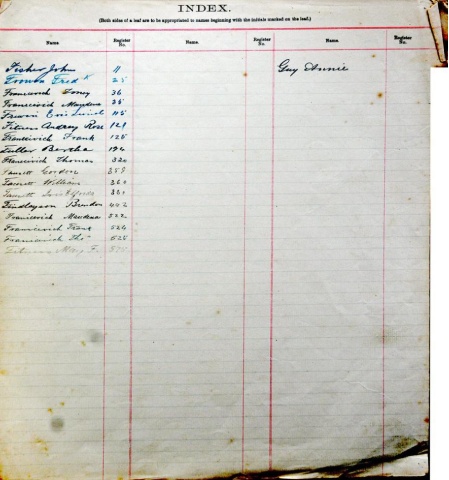 INDEX.
(Both sides of a leaf are to be appropriated to names beginning with the initials marked on the leaf.)
Name Register No. Name. Register No. Name. Register No.
Fisher John 11
Fred K 25
Francevich Toney 36
Francevich Mandena 36
115
Fitures Audrey Rose 121
Francevich Frank 125
Fuller Bertha 194
Francevich Thomas 320
Fausett Gordon 359
Fausett William 360
Fausett 380
Findlayson Brendon 442
Francevich Mandena 522
Francevich Frank 524
Francevich Tho 525
Mary F.
Guy Annie